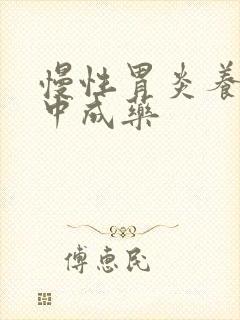 慢性胃炎养
中成藥
傅惠民